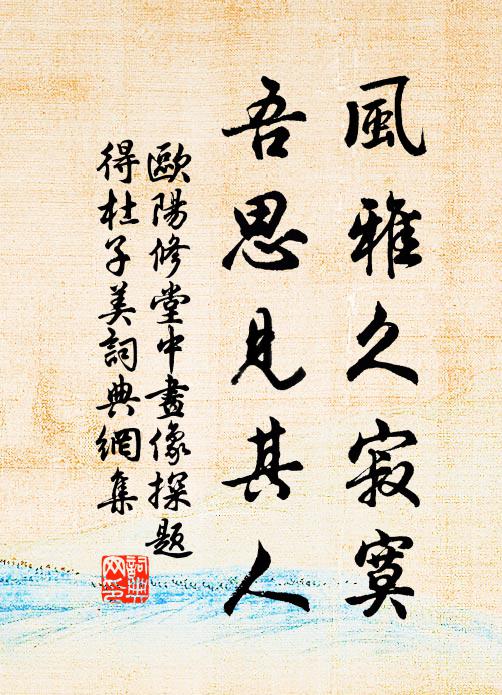 風雅久寂寞
吾思見其人
歐陽修堂中畫像探題
得杜子美詞典網集
詞典網集